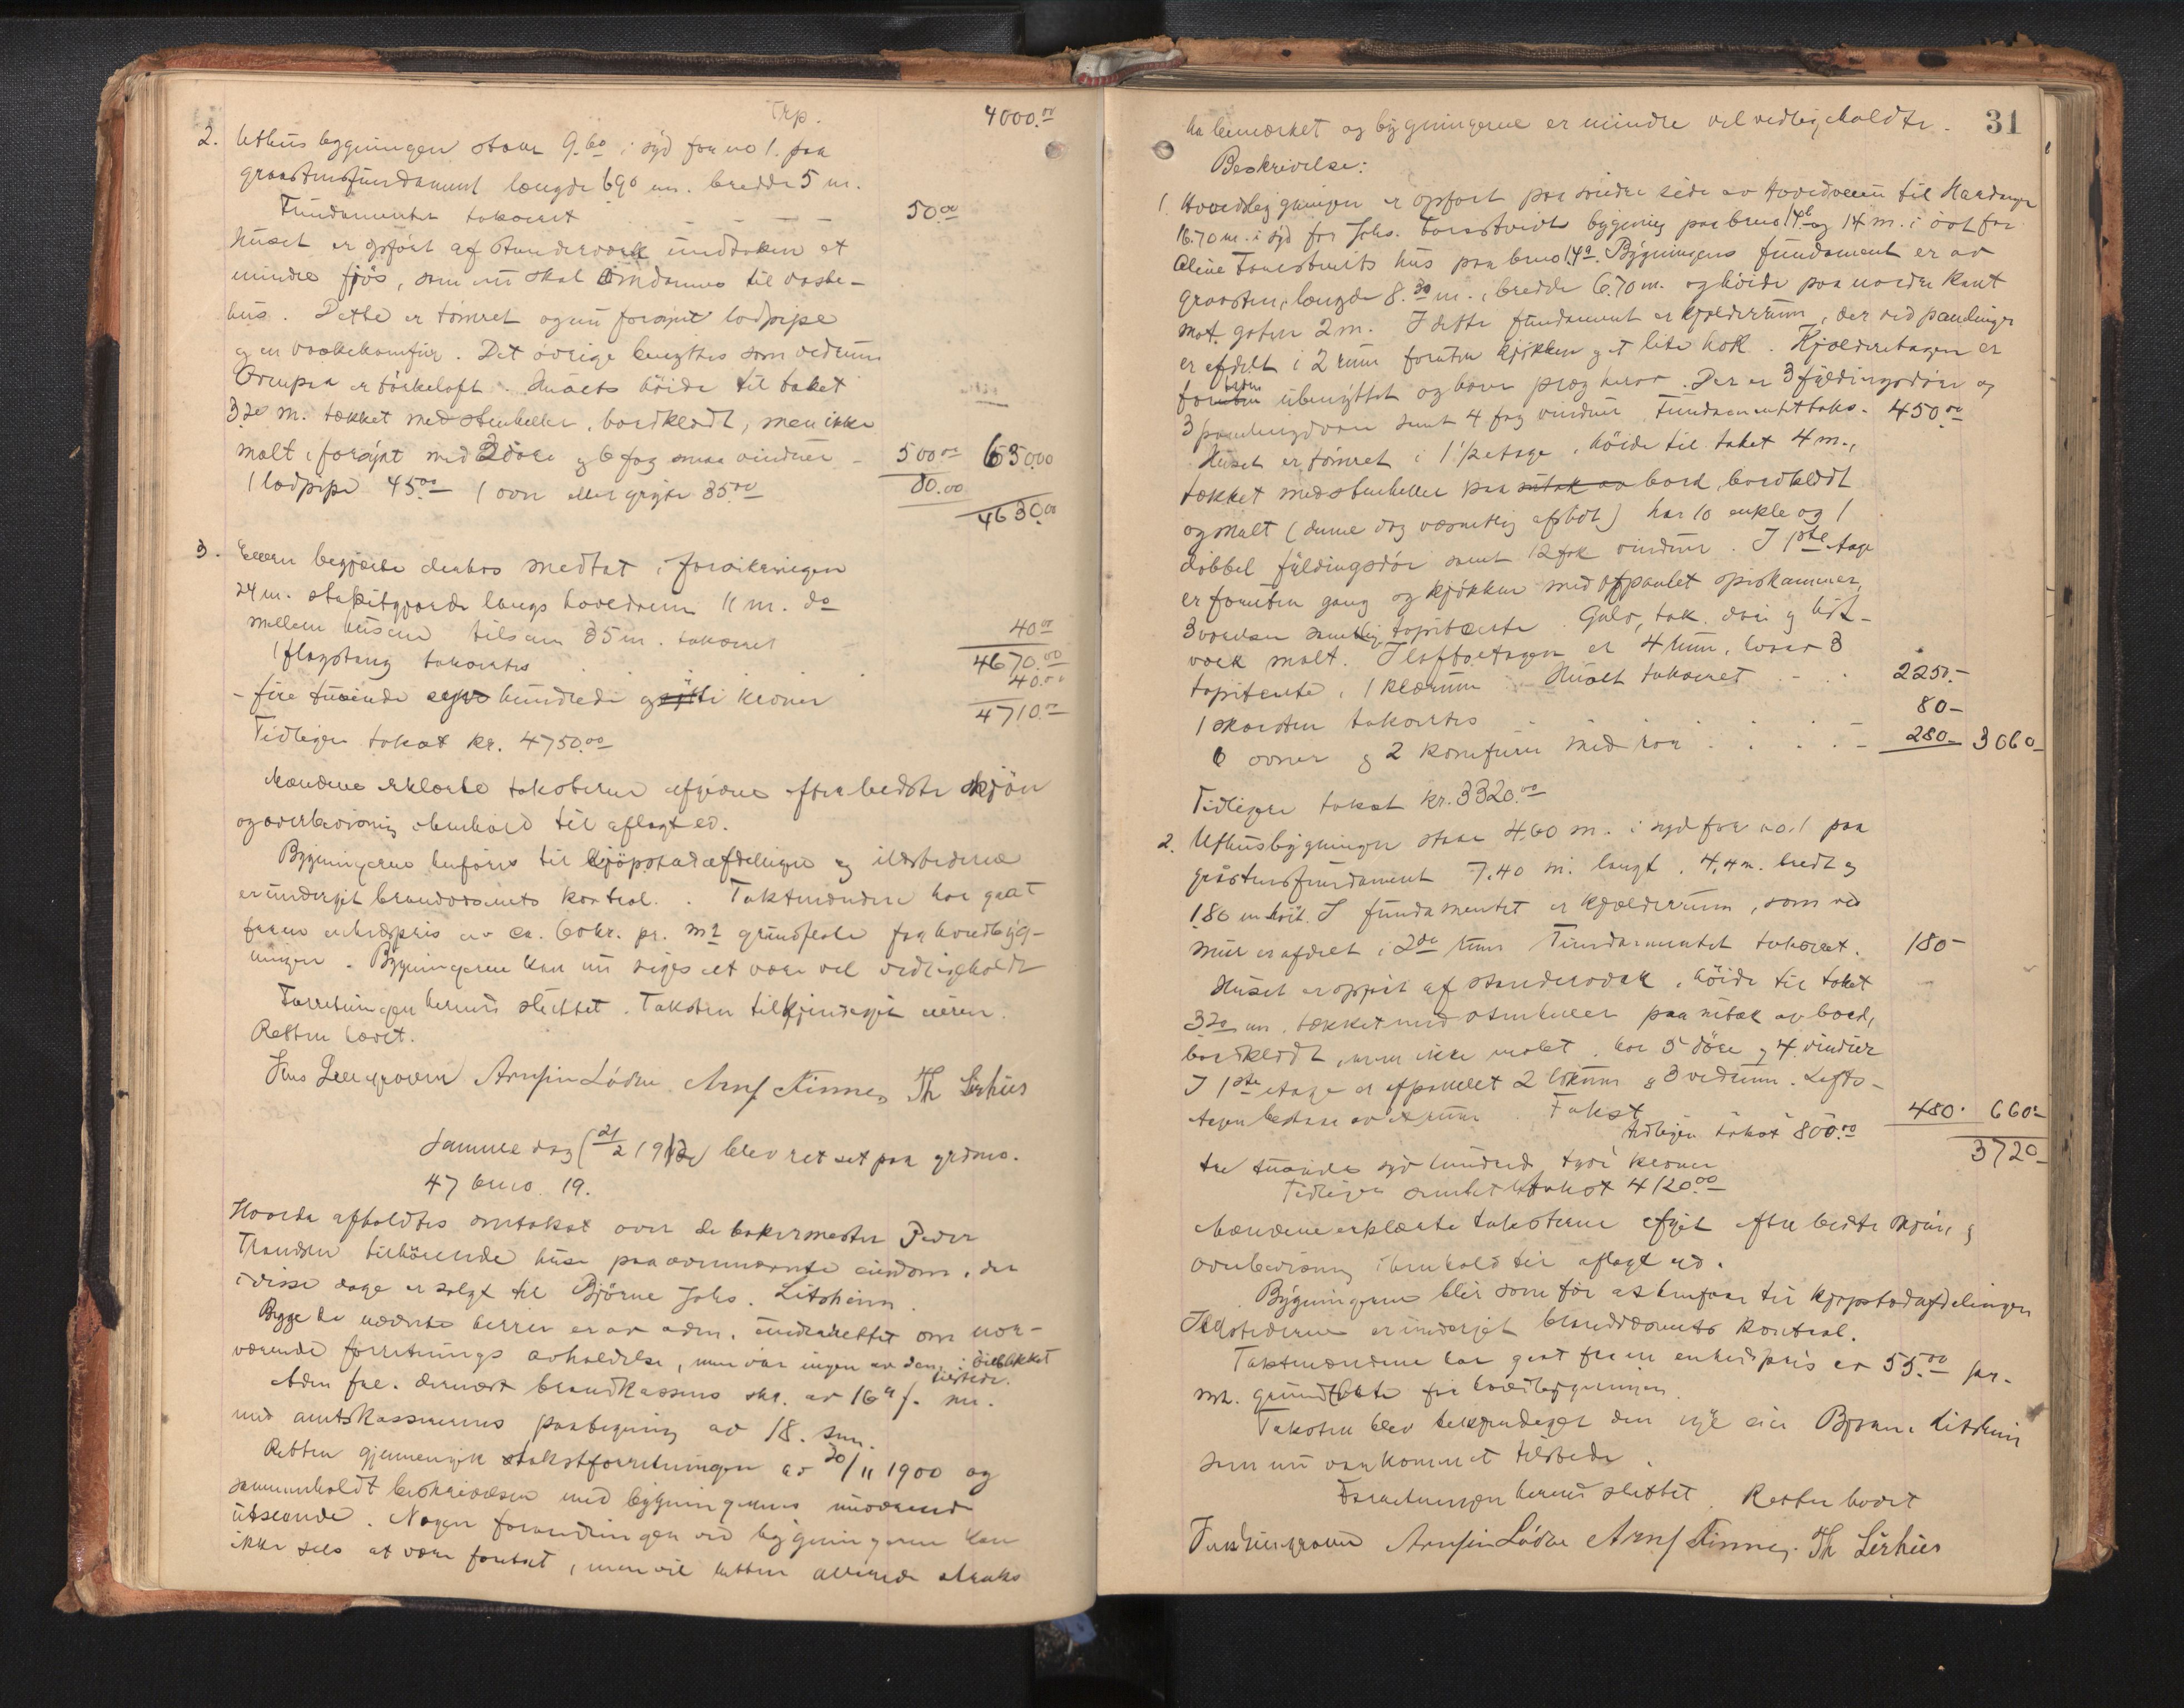 Trp. 4000.00
2. Uthusbygningen staar 9.60 i syd for no 1. paa
graastensfundament længde 690 m. bredde 5 m.
Fundamentet takseret - - - 50.00
Huset er opført af standerverk undtaken et
mindre fjøs, som nu skal omdannes til vaske-
hus. Dette er tømret og nu forsynt lodpipe
og en vaskekomfur. Det øvrige benyttes som vedrum
Ovenpaa er tørkeloft. Husets høide til taket
3.20 m. tækket med stenheller, bordklædt, men ikke
malt, forsynt med 2 døre og 6 fag smaa vinduer - 500.00 630.00
1 lodpipe 45.00 1 ovn eller gryte 35.00 80.00
4630.00
3. Eieren begjærte derhos medtat i forsikringen
24 m. stakitgjærde langs hovedveien 11 m. do
mellem husene tilsam 35 m. takseret 40.00
4670.00
1 flagstang takseres 40.00
- fire tusinde syv hundrede og ti kroner 4710.00
Tidligere takst kr. 4750.00
Mændene erklærte taksterne afgivne efter bedste skjøn
og overbevisning i henhold til aflagt ed.
Bygningerne henføres til kjøpstadafdelingen og ildstederne
er undergit brandvæsenets kontrol. Takstmændene har gaat
fra en enhedspris av ca. 60 kr. pr. m2 grundflate for hovedbyg-
ningen. Bygningerne kan nu siges at være vel vedligeholdt
Forretningen hermed sluttet. Taksten tilkjendegit eieren.
Retten hævet.
Arnfin Lødve Arnf Finnes Th Lirhus
Samme dag (21/2 1912) blev ret sat paa grdno.
47 bruo. 19.
Hvorda afholdtes omtakst over de bakermester Peder
Trandsen tilhørende huse paa ovennævnte eiendom, der
i disse dage er solgt til Bjørne Johs. Litsheim.
Begge de nævnte herrer er av adm. underrettet om nær-
værende forretnings avholdelse, men var ingen av dem i øieblikket
tilstede.
Adm frl. dernæst brandkassens skr. av 16de f. m.
med amtskasserens paategning av 18. sm.
Retten gjennemgik takstforretningen av 30/11 1900 og
sammenholdt beskrivelsen med bygningernes nuværende
utseende. Nogen forandringer ved bygningerne kan
ikke sees at være foretat, men vil retten allerede straks
31
ha bemærket og bygningerne er mindre vel vedligeholdte.
Beskrivelse:
1. Hovedbygningen er opført paa søndre side av hovedveien til Hardanger
16.70 m. i syd for Johs. bygning paa bruo 14b og 14 m. i øst for
hus paa bruo 14a. Bygningens fundament er av
graasten, længde 8.30 m., bredde 6.70 m. og høide paa nordre kant
mot gaten 2 m. I dette fundament er kjælderrum, der ved panelinger
er afdelt i 2 rum foruten kjøkken og et lite hok. Kjælderetagen er
ubenyttet og bærer præg herav. Der er 3 fyldingsdøre og
3 samt 4 fag vinduer. Fundamentet taks. 450.00
Huset er tømret i 1 1/2 etage, høide til taket 4 m.,
tækket med stenheller paa bord, bordklædt
og malt (denne dog væsentlig afslidt) har 10 enkle og 1
dobbel fyldingsdør samt 12 fag vinduer. I 1ste etage
er foruten gang og kjøkken med afpanlet spiskammer
3 værelser samtlig tapiterte. Gulv, tak, døre og list-
verk malt. I loftsetagen er 4 rum, hvorav 3
tapiterte, 1 klærum. Huset takseret - - 2250.-
1 skorsten takseres 80-
6 ovner og 2 komfurer med rør 280- 3060-
Tidligere takst kr. 3320.00
2. Uthusbygningen staar 4.60 m. i syd for no. 1 paa
graastensfundament 7.40 m. langt, 4,4 m. bredt og
1.80 m høit. I fundamentet er kjælderrum, som ved
mur er afdelt i 2de rum Fundamentet takseret. 180-
Huset er opført af standerverk, høide til taket
3.20 m. tækket med stenheller paa nitak av bord,
bordklædt, men ikke malet. har 5 døre og 4 vinduer
I 1ste etage er afpanelet 2 og 3 vedrum. Lofts-
etagen bestaar av rum. Takst 480. 660-
tidligere takst 800.00
3720-
tre tusinde syv hundred tyve kroner
Tidligere samlet takst 4120.00
Mændene erklærte taksterne afgit efter bedste skjøn og
overbevisning i henhold til aflagt ed.
Bygningerne blir som før at henføre til kjøpstadafdelingen
Ildstederne er undergit brandvæsenets kontrol.
Takstmændene har gaat fra en enhedspris av 55.00 pr.
m2. grundflate for hovedbygningen.
Taksten blev tilkjendegit den nye eier Bjørne Litsheim
som nu var kommet tilstede.
Forretningen hermed sluttet. Retten hævet
Arnfin Lødve Arnf Finnes. Th Lirhus